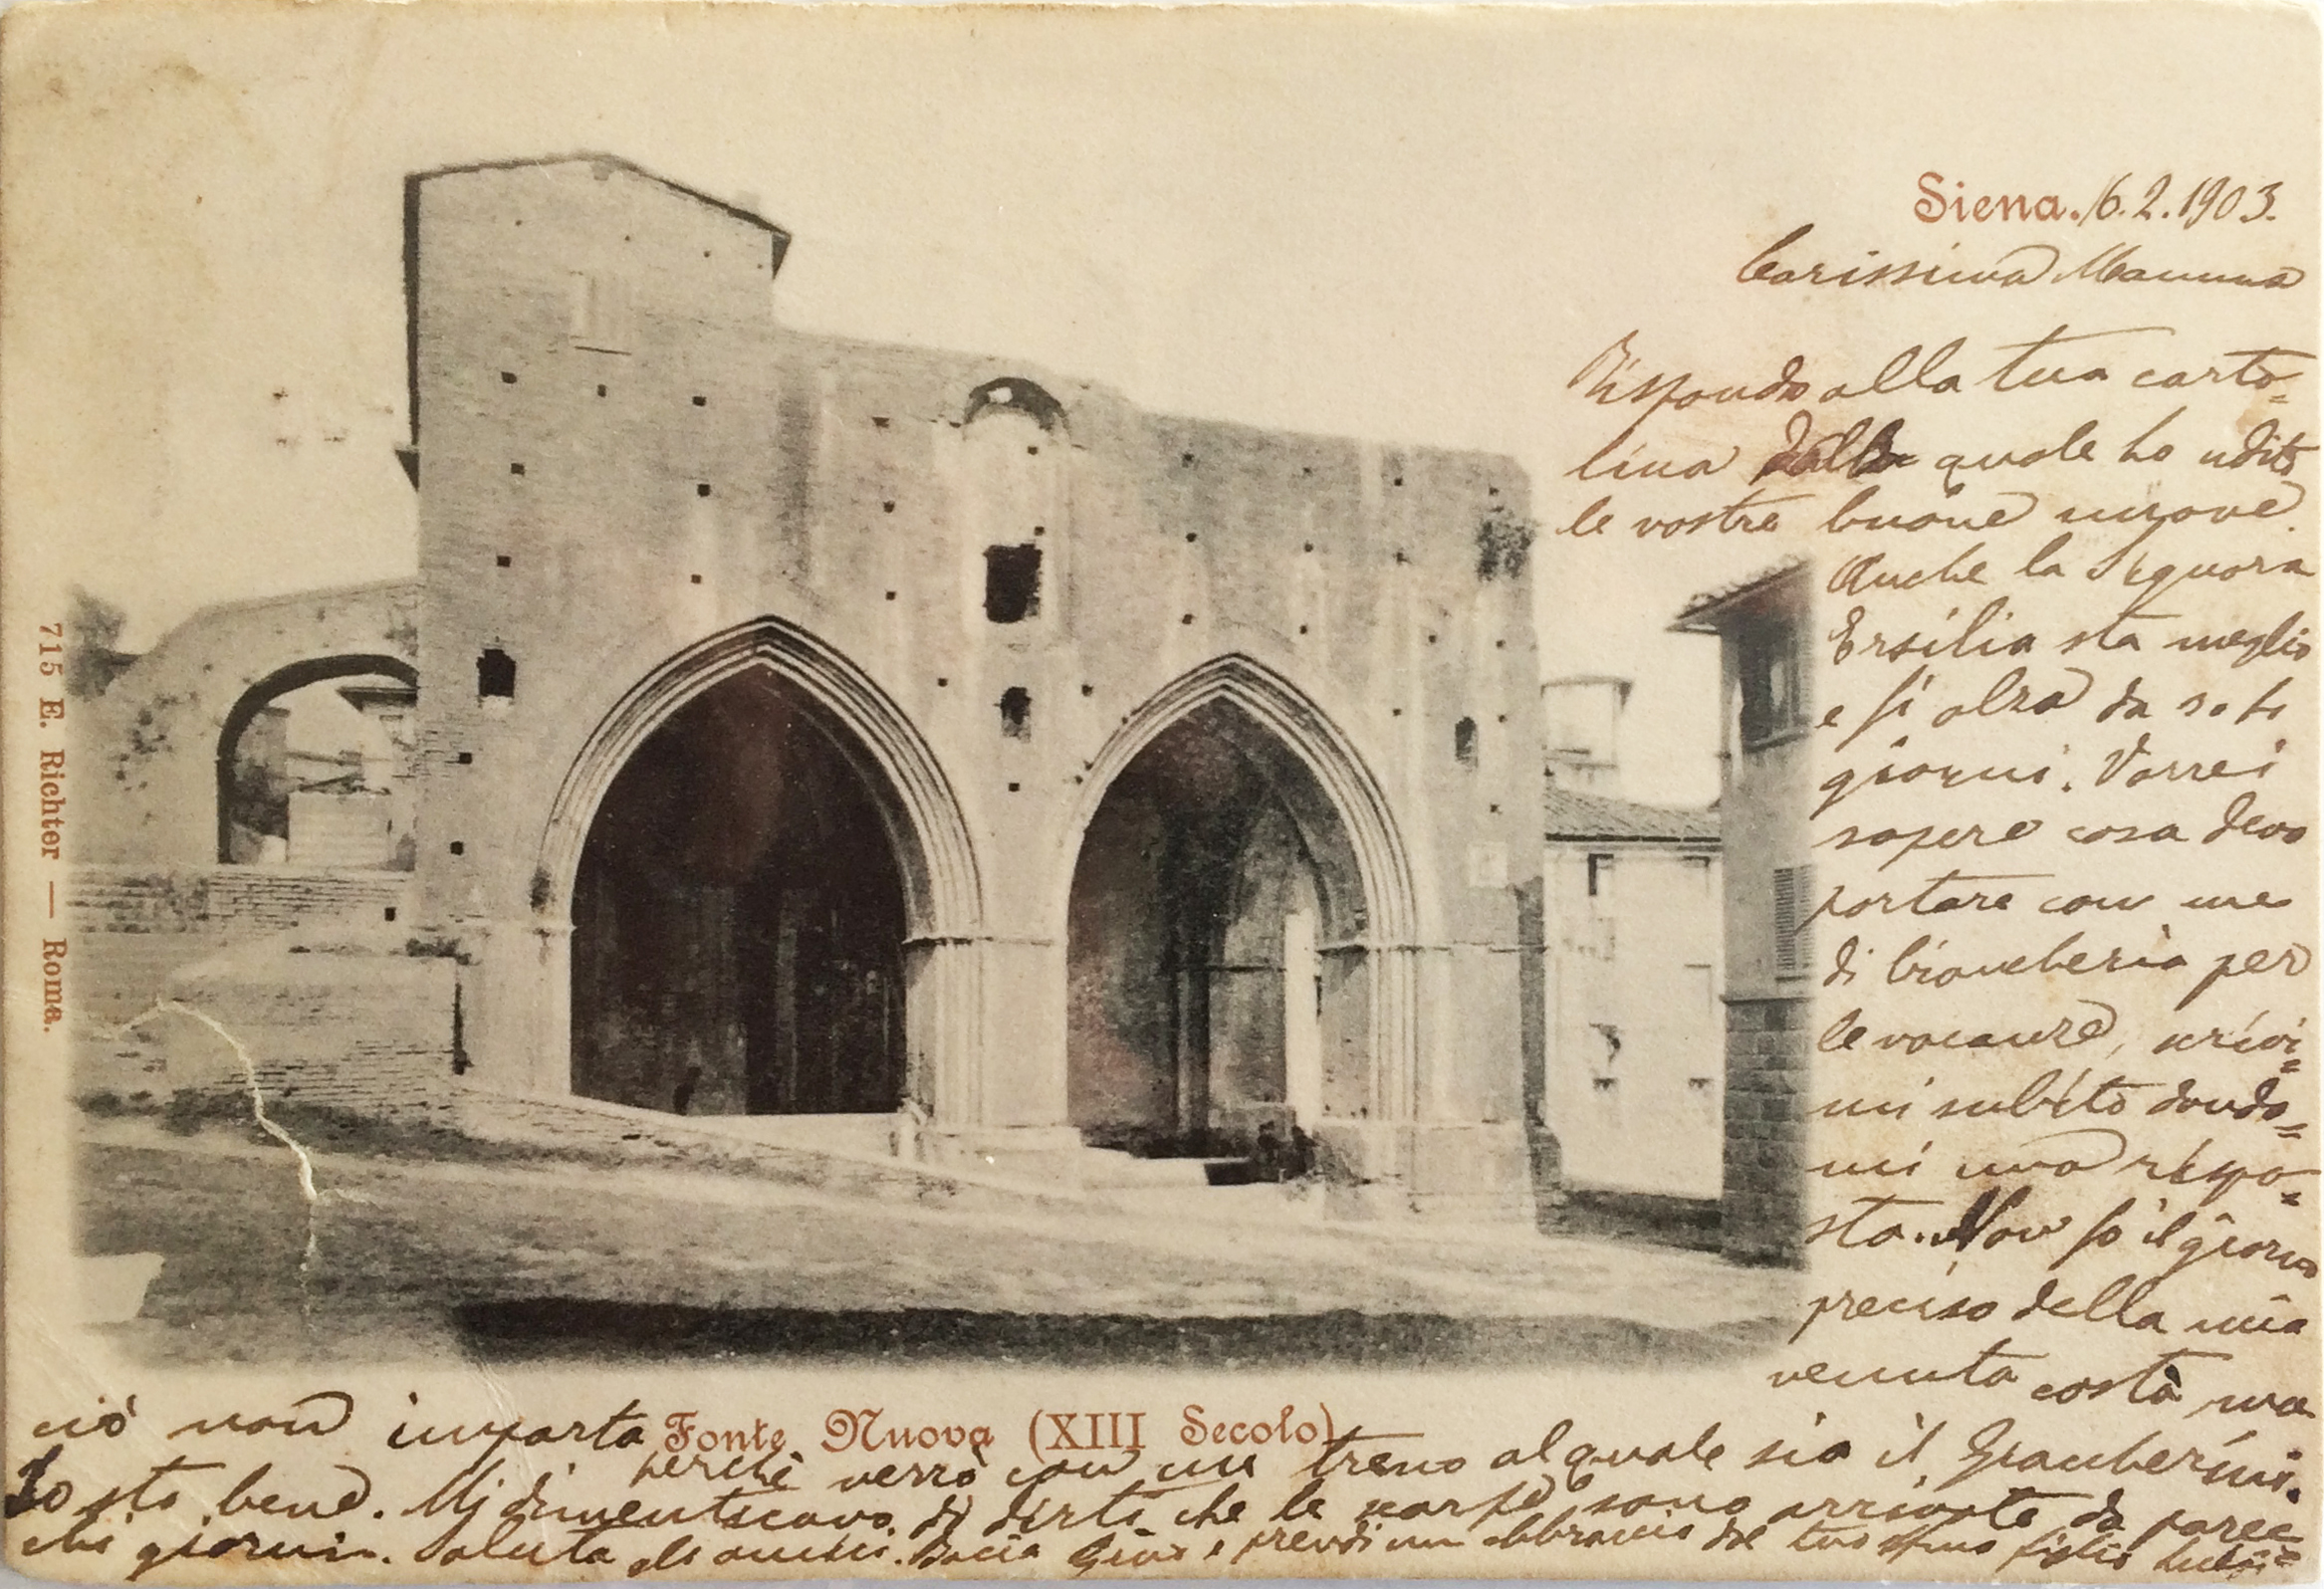 Siena. 16.2.1903.
Carissima Mamma
Rispondo alla tua carto=
lina dalla quale ho udito
le vostre buone nuove.
Anche la Signora
Ersilia sta meglio
e si alza da
giorni. Vorrei
sapere cosa devo
portare con me
di biancheria per
le vacanze, scrivi=
mi subito dando=
mi una rispo=
sta. Non so il giorno
preciso della mia
venuta costà ma
ciò non importa
Fonte Nuova (XIII Secolo)
perchè verrò con un treno al quale sia il Giamberini.
Io sto bene. Mi dimenticavo di dirti che le scarpe sono arrivate da parec=
chi giorni. Saluta gli amici. Bacia e prendi un abbraccio dal tuo figlio
715 E. Richter — Roma.